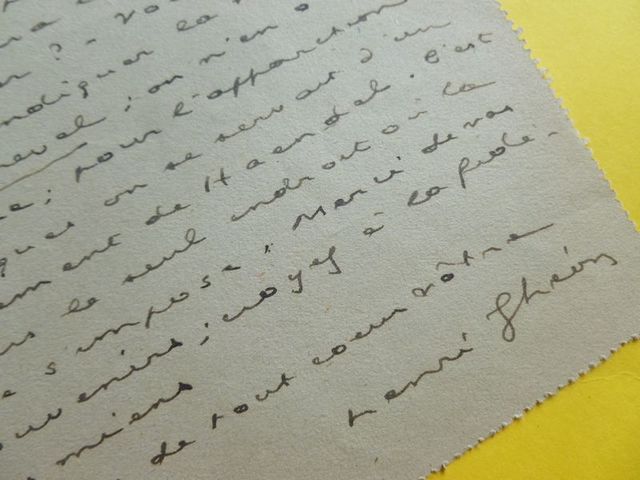 ? -
ndiquer la
neval ; on n'en a
; pour l'apparition
ques on se servait d'un
ement de Haendel. C'est
le seul endroit où la
s'impose. Merci de vos
ouvenirs ; croyez à la fidé-
miens
de tout coeur vôtre
Henri Ghéon